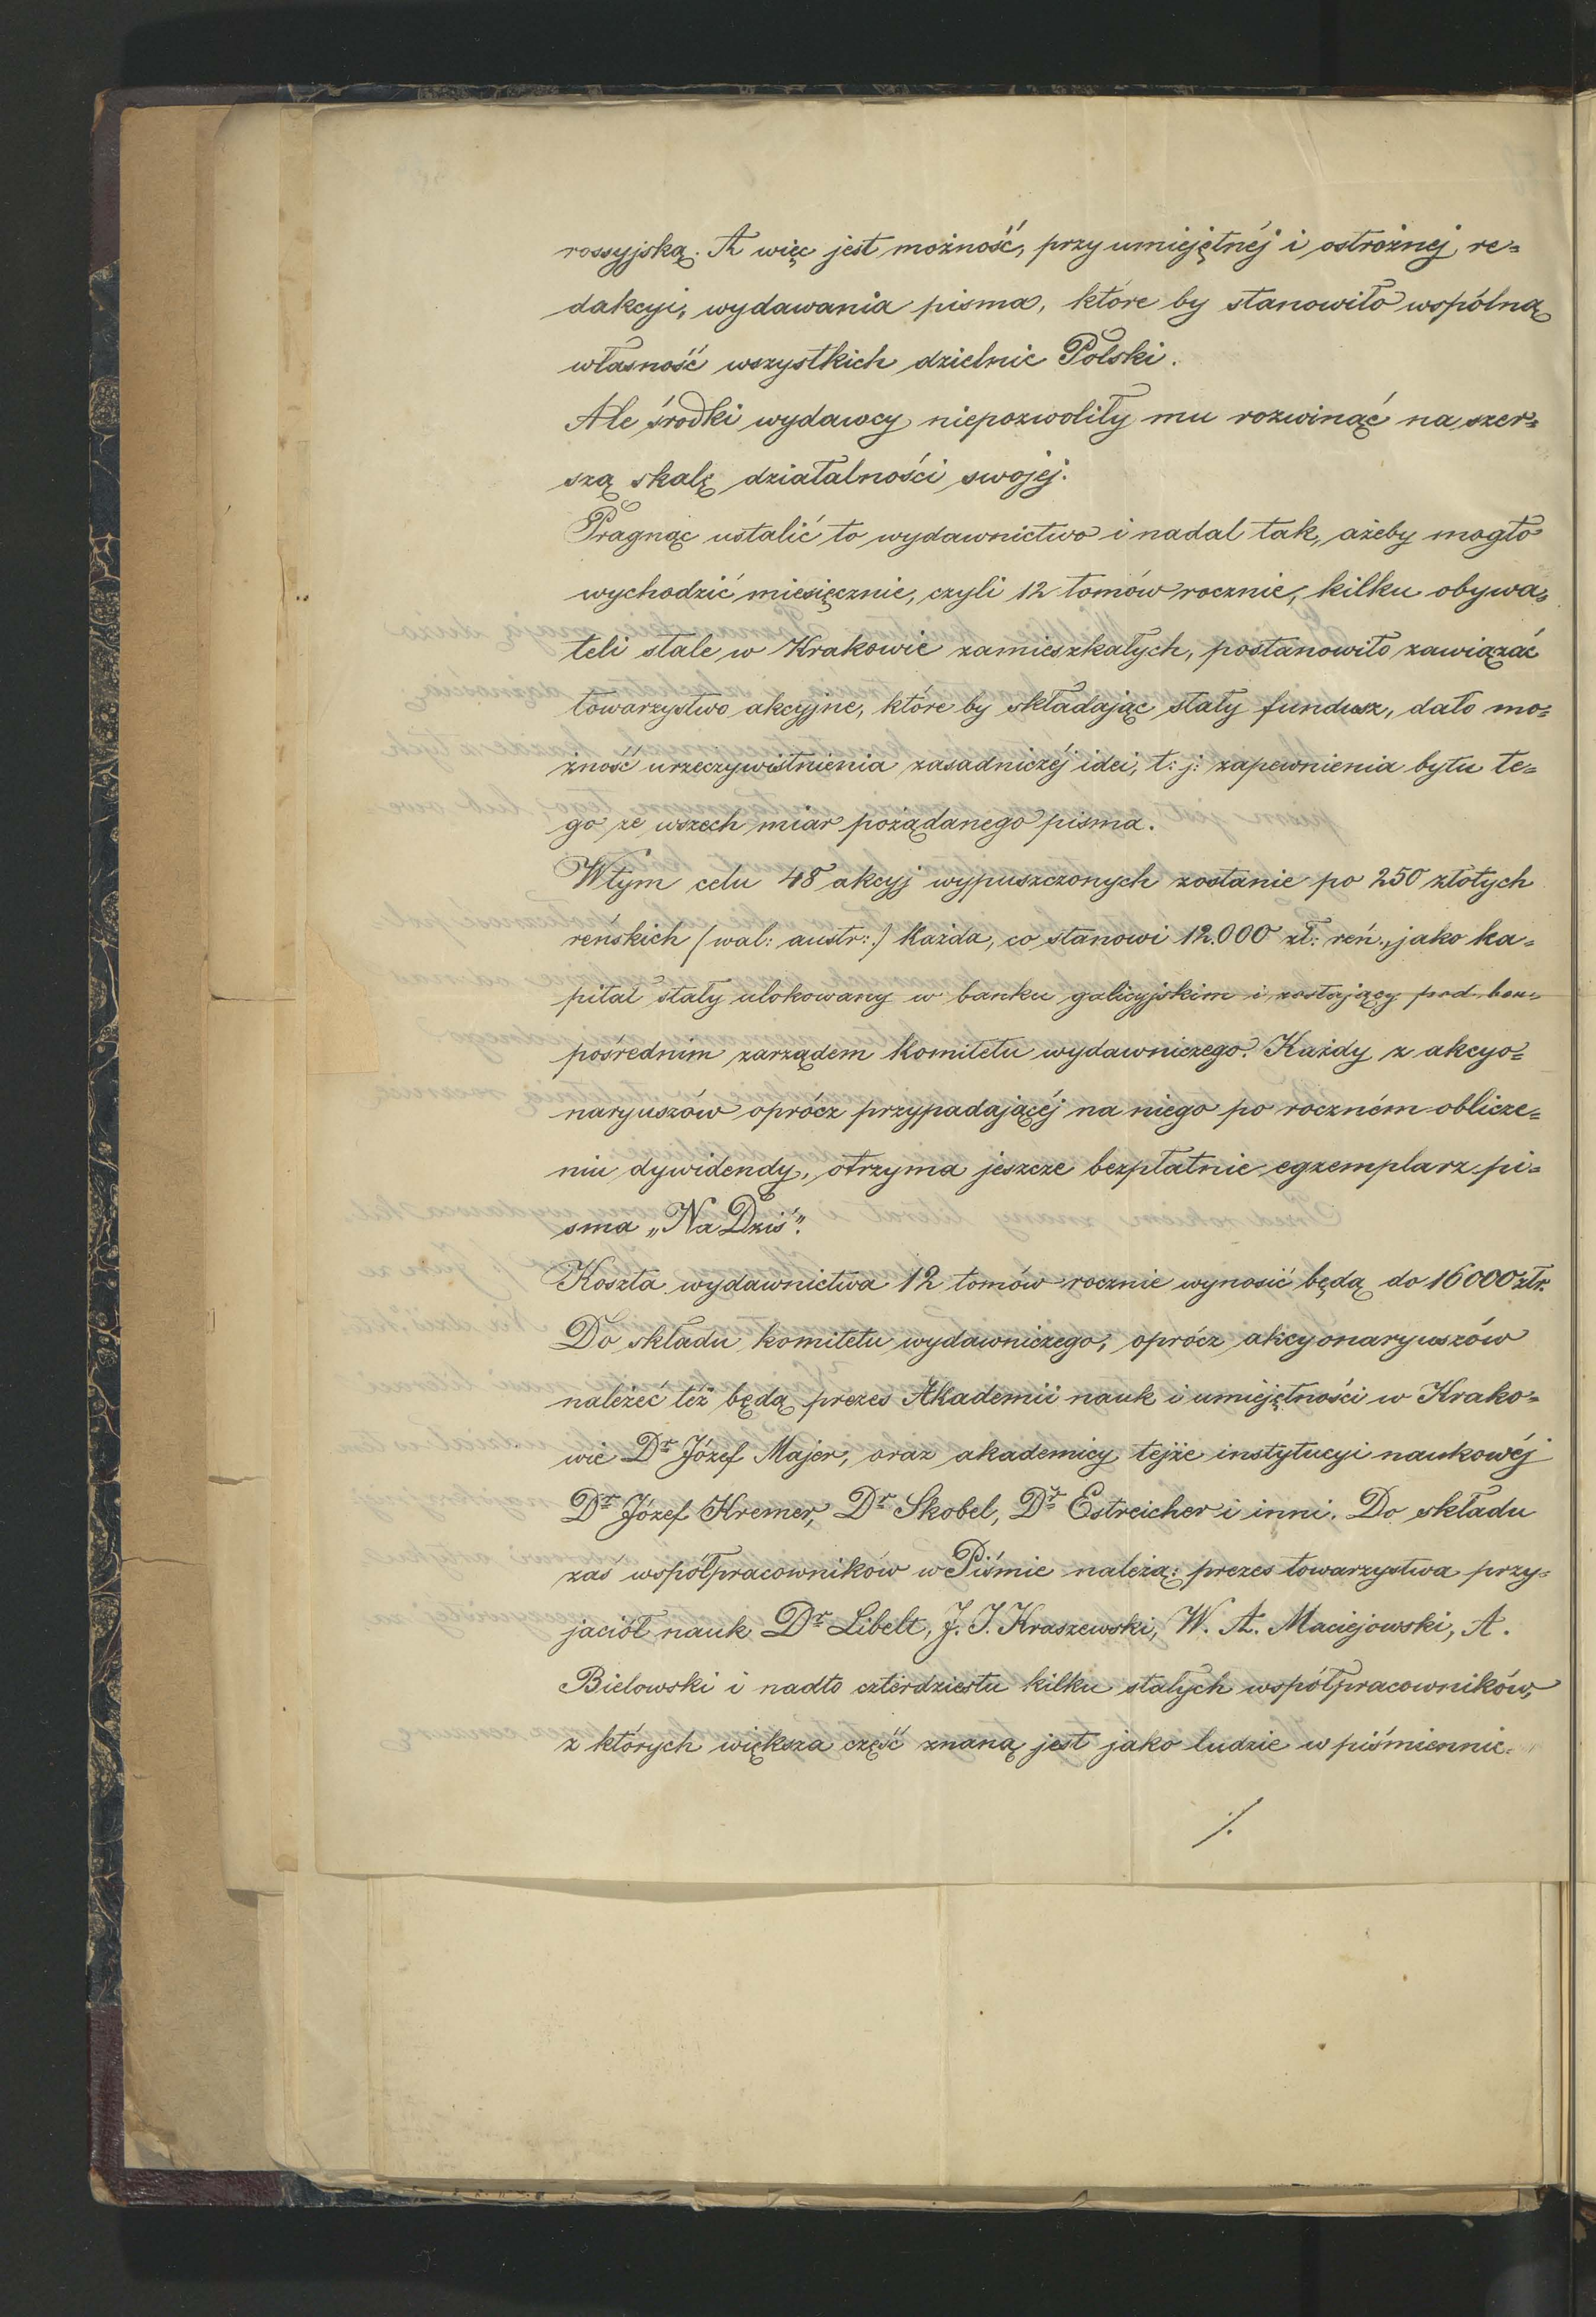 rossyjską. A więc jest możność, przy umiejętnéj i ostrożnej re=
dakcyi, wydawania pisma, które by stanowiło wspólną
własność wszystkich dzielnic Polski.
Ale środki wydawcy niepozwoliły mu rozwinąć na szer=
szą skalę działalności swojej.
Pragnąc ustalić to wydawnictwo i nadal tak, ażeby mogło
wychodzić miesięcznie, czyli 12 tomów rocznie, kilku obywa=
teli stale w Krakowie zamieszkałych, postanowiło zawiązać
towarzystwo akcyjne, które by składając stały fundusz, dało mo=
żność urzeczywistnienia zasadniczéj idei, t: j: zapewnienia bytu te=
go ze wszech miar pożądanego pisma.
W tym celu 48 akcyj wypuszczonych zostanie po 250 złotych
reńskich /wal: austr:/ każda, co stanowi 12.000 zł: reń:, jako ka=
pitał stały ulokowany w banku galicyjskim i zostający pod bez=
pośrednim zarządem komitetu wydawniczego. Każdy z akcyo=
naryuszów oprócz przypadającéj na niego po roczném oblicze=
niu dywidendy, otrzyma jeszcze bezpłatnie egzemplarz pi=
sma „Na Dziś".
Koszta wydawnictwa 12 tomów rocznie wynosić będą do 16000 złr.
Do składu komitetu wydawniczego, oprócz akcyonaryuszów
należeć téż będą prezes Akademii nauk i umiejętności w Krako=
wie Dr Józef Majer, oraz akademicy tejże instytucyi naukowéj
Dr Józef Kremer, Dr Skobel, Dr Estreicher i inni. Do składu
zaś współpracowników w Piśmie należą: prezes towarzystwa przy=
jaciół nauk Dr Libelt, J. I. Kraszewski, W. A. Maciejowski, A.
Bielowski i nadto czterdziestu kilku stałych współpracowników,
z których większa część znaną jest jako ludzie w piśmiennic=
./.